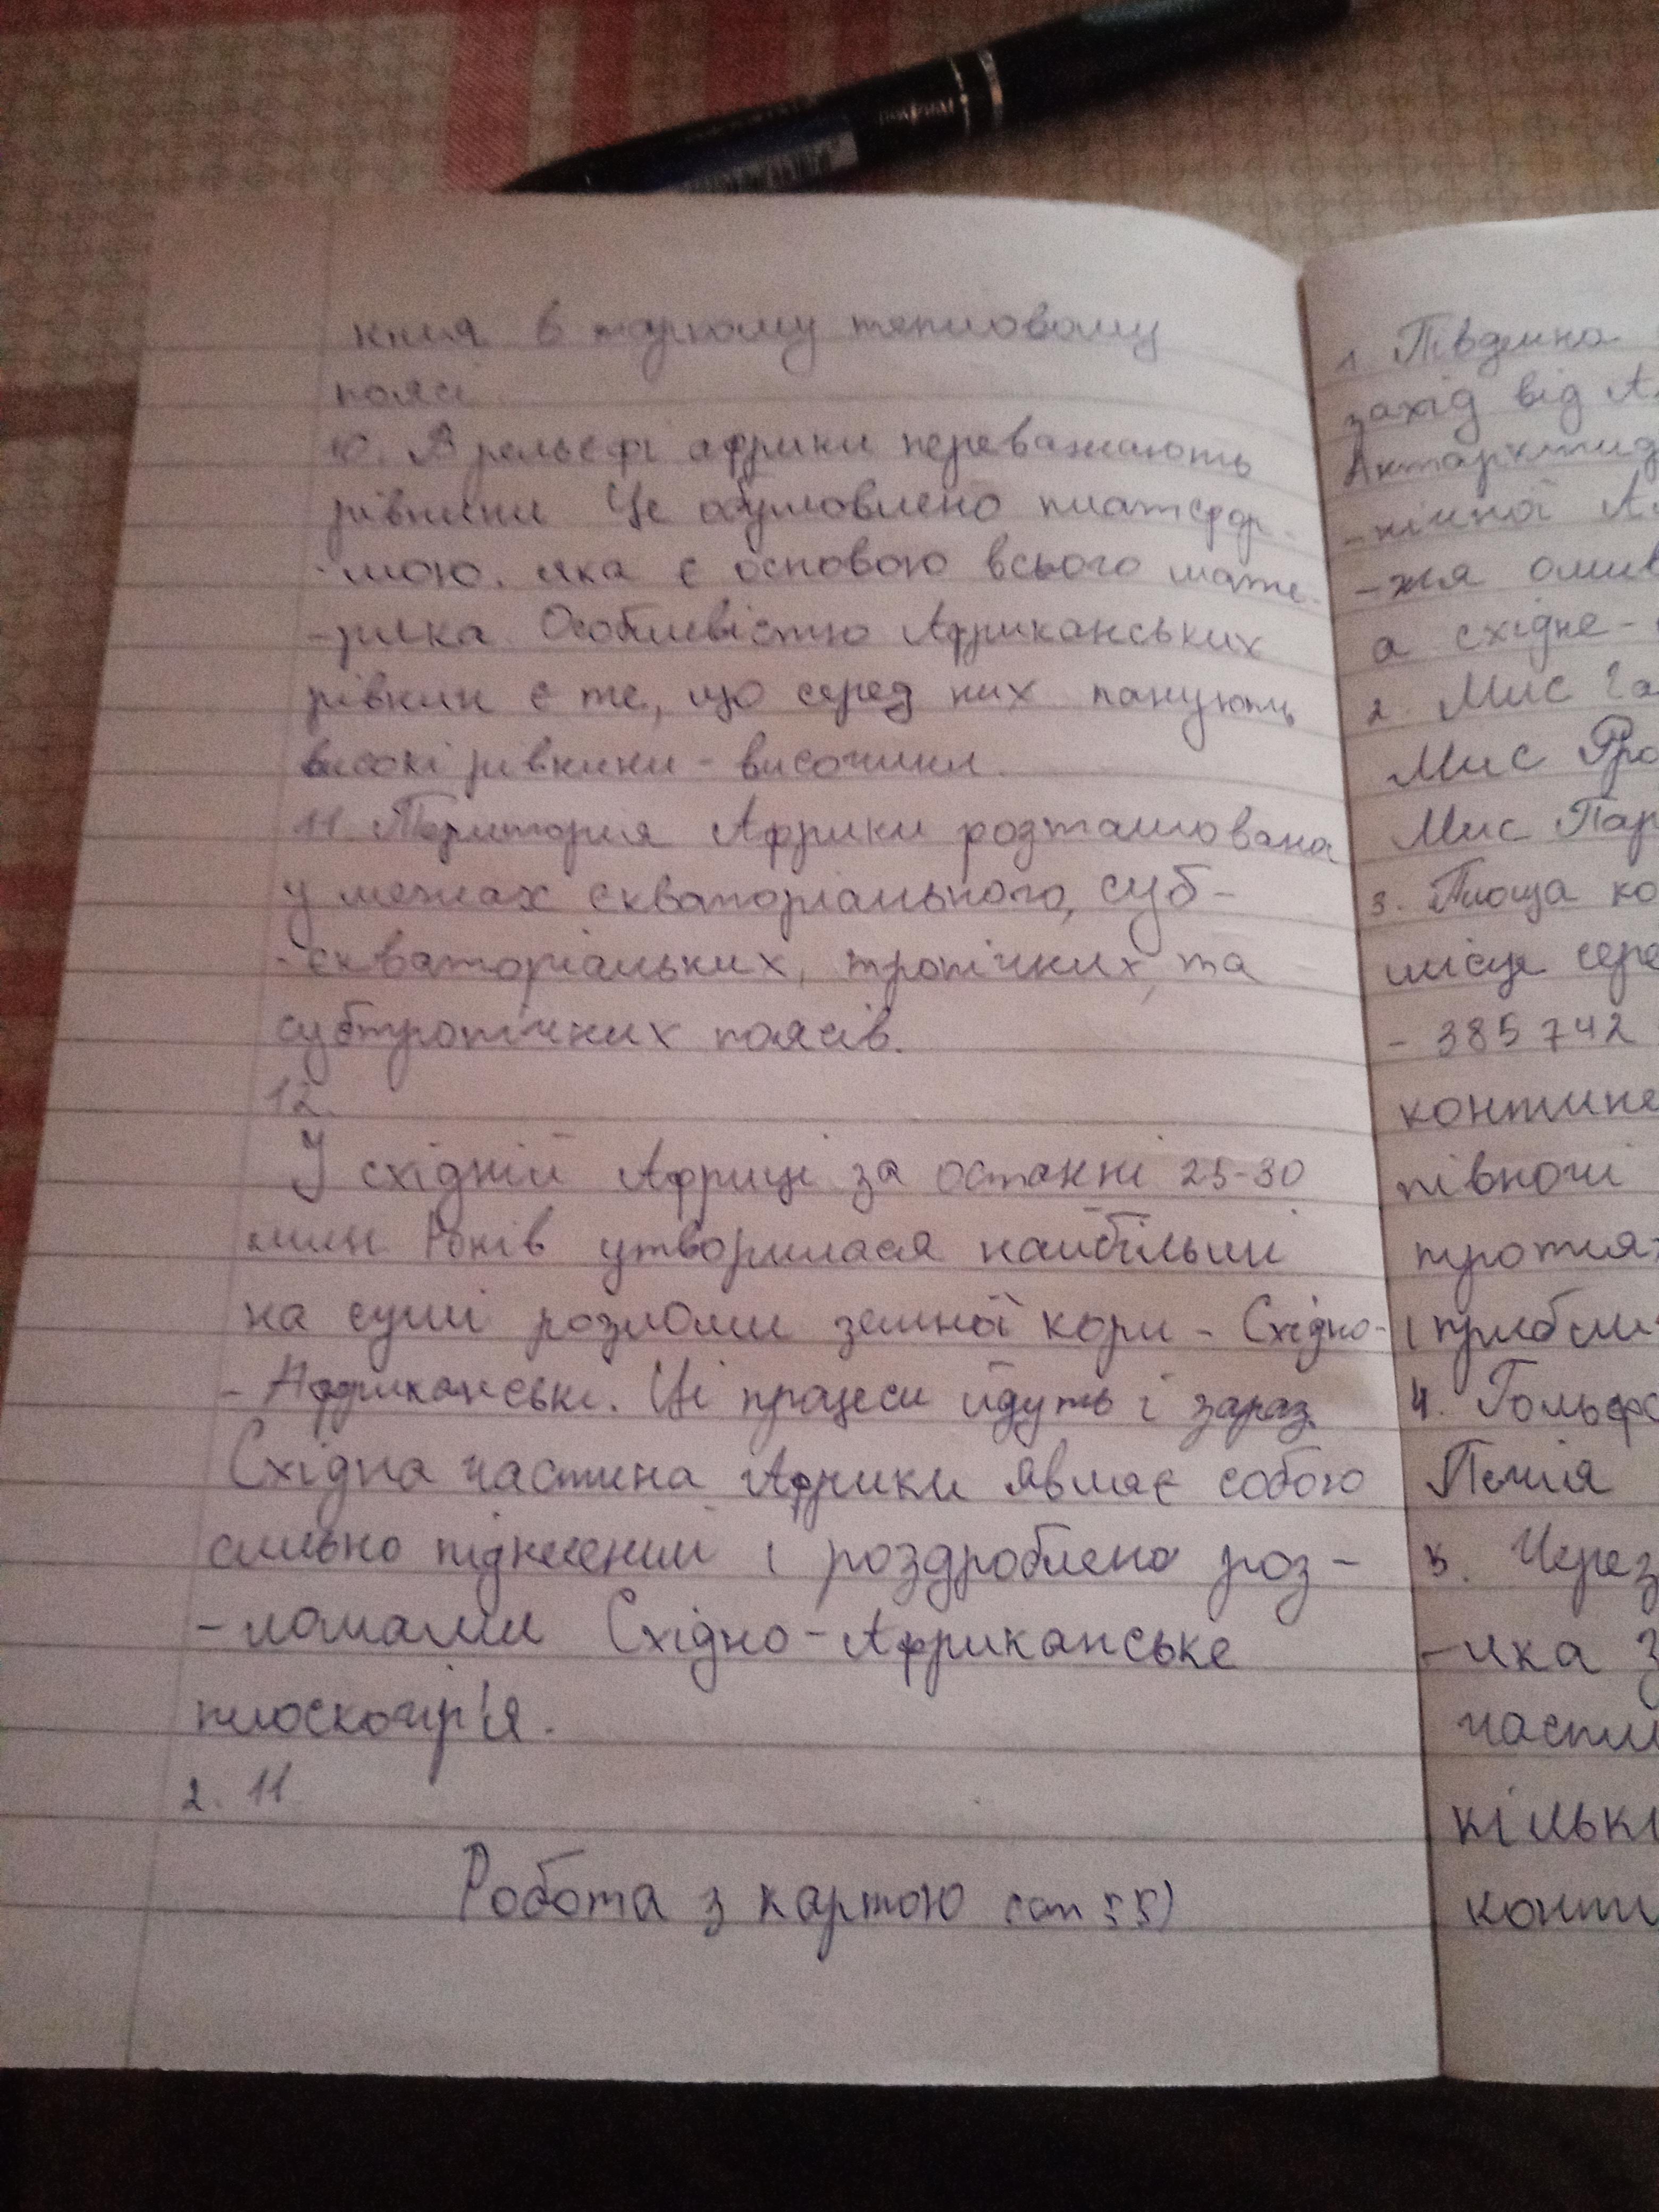 в жаркому тепловому
поясі
10. В рельєфі африки переважають
рівнини Це обумовлено платсфор-
-мою. яка є основою всього мате-
-рика. Особливістю Африканських
рівнин є те, що серед них панують
високі рівнини - височини.
11. Територия Африки розташована
у межах екваторіального, суб-
-екваторіальних, тропічних, та
субтропічних поясів.
12.
У східній Африці за останні 25-30
млн Років утворилася найбільші
на суші розломи земної кори - Східно-
- Африканські. Ці процеси йдуть і зараз.
Східна частина Африки являє собою
сильно піднесений і роздроблено роз-
-ломами Східно-Африканське
плоскогір'я.
2. 11
Робота з картою 55)
1. Південна
захід від
Антарктид
-нічної
-жя омив
а східне-
2. Мис Га
Мис Фро
Мис Пар
3. Площа ко
місце сере
- 385742
контине
півночі
протяж
і приблиз
4. Гольфс
Течія
5. Через
-ика з
части
кількі
конти